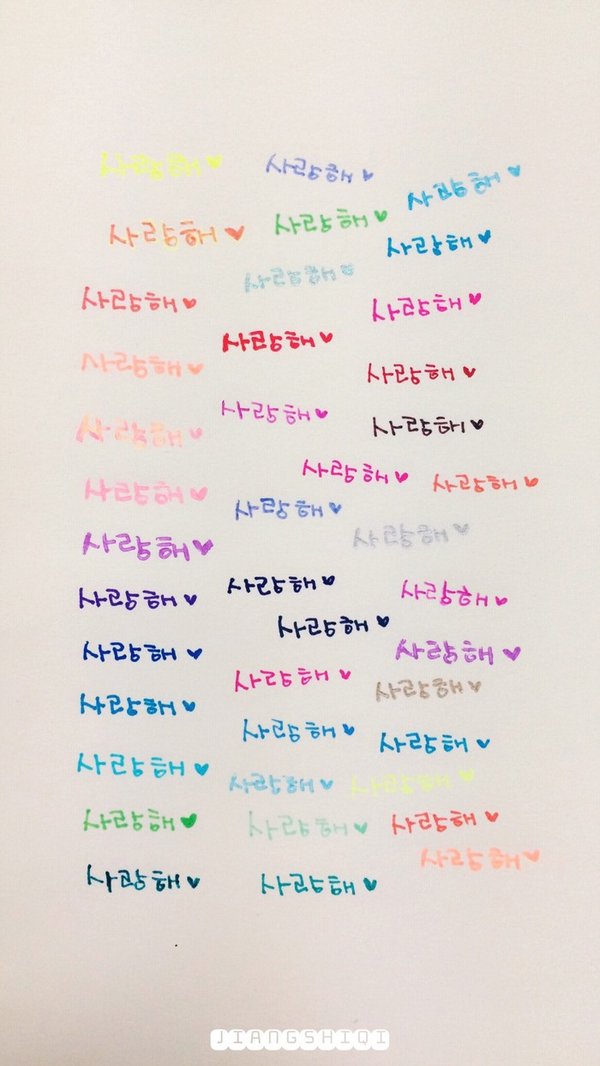 사랑해♥ 사랑해♥ 사랑해♥
사랑해♥ 사랑해♥ 사랑해♥
사랑해♥ 사랑해♥ 사랑해♥
사랑해♥ 사랑해♥ 사랑해♥
사랑해♥ 사랑해♥ 사랑해♥
사랑해♥ 사랑해♥ 사랑해♥
사랑해♥ 사랑해♥ 사랑해♥
사랑해♥ 사랑해♥ 사랑해♥
사랑해♥ 사랑해♥ 사랑해♥
사랑해♥ 사랑해♥ 사랑해♥
사랑해♥ 사랑해♥ 사랑해♥
사랑해♥ 사랑해♥ 사랑해♥
사랑해♥ 사랑해♥ 사랑해♥
사랑해♥ 사랑해♥
JIANGSHIQI